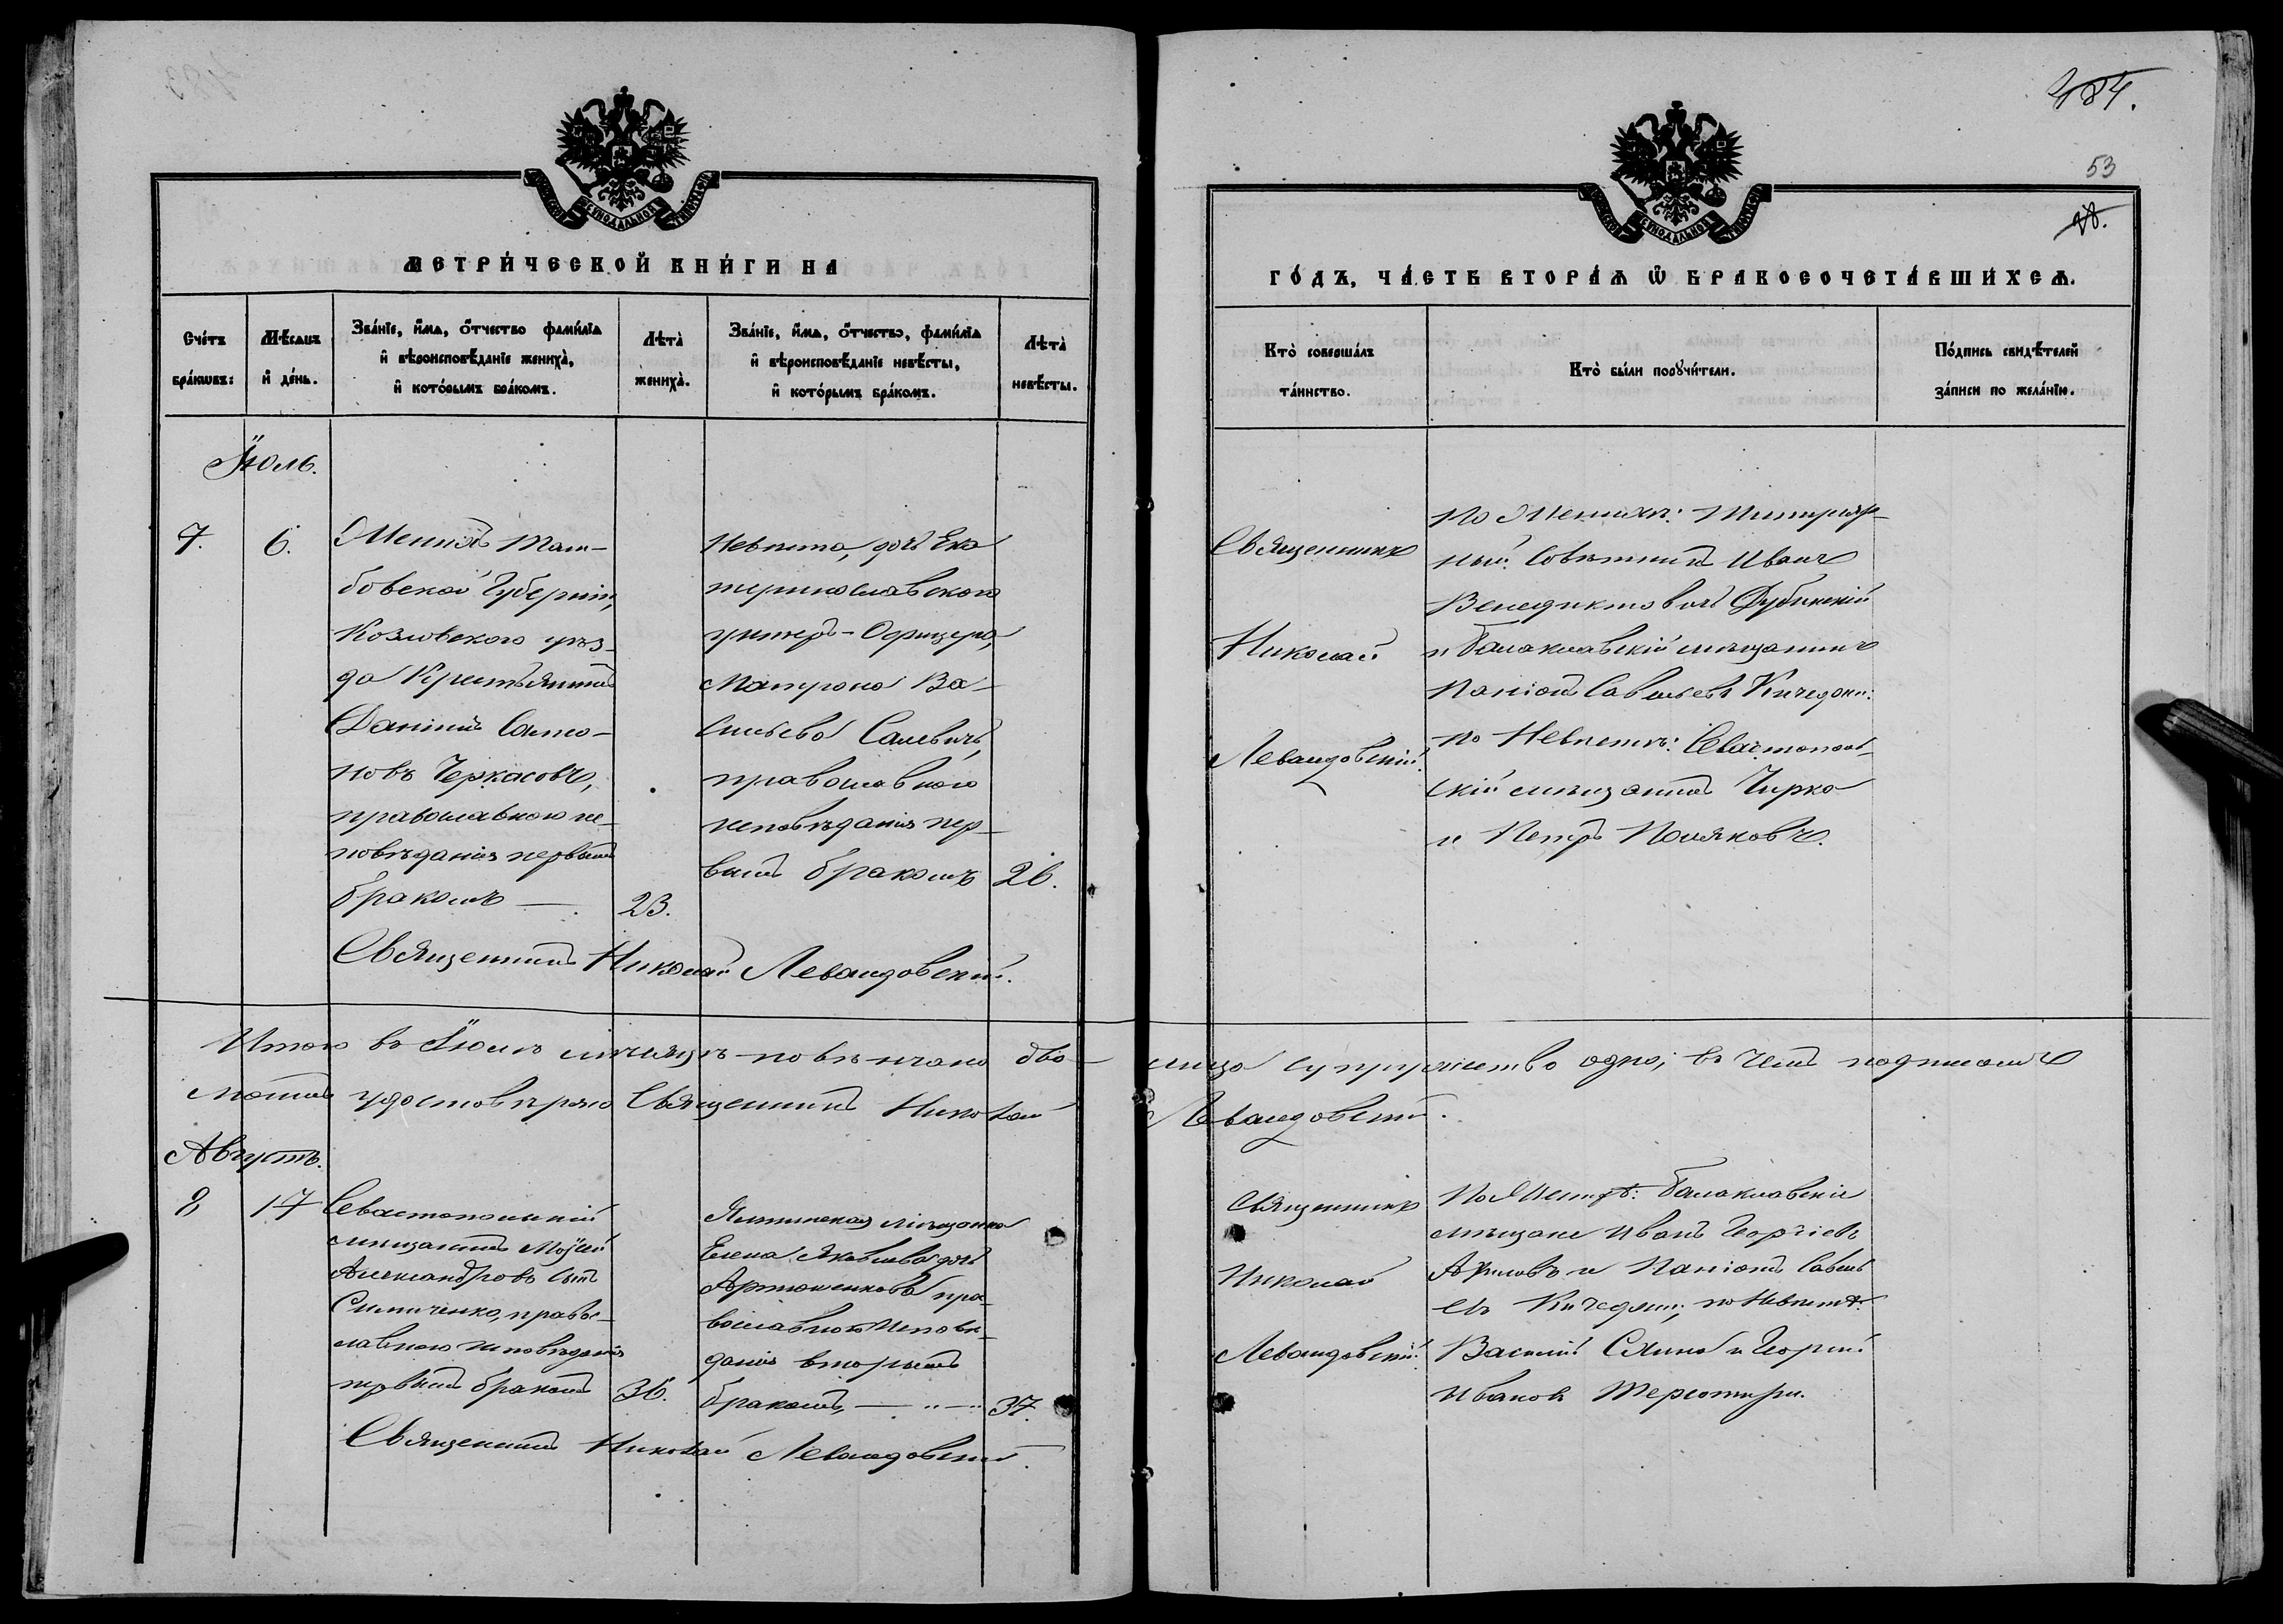 484.
53
МЕТРИ́ЧЕСКОЙ КНИ́ГИ НА
ГО́ДЪ, ЧА́СТЬ ВТОРА́Ѧ Ѿ БРАКОСОЧЕТА́ВШИХСѦ.
Сче́тъ бра́кѡвъ:
Мѣ́сѧцъ и҆ де́нь.
Зва́нїе, и҆́мѧ, ѻ҆́тчество фами́лїѧ
и҆ вѣроисповѣ́данїе жениха̀,
и҆ кото́рымъ бра́комъ.
Лѣта̀ жениха̀.
Зва́нїе, и҆́мѧ, ѻ҆́тчество, фами́лїѧ
и҆ вѣроисповѣ́данїе невѣ́сты,
и҆ кото́рымъ бра́комъ.
Лѣта̀ невѣ́сты.
Кто̀ соверша́лъ та́инство.
Кто̀ бы́ли порꙋчи́тели.
По́дпись свидѣ́телей за́писи по жела́нїю.
Іюль.
7.
6.
Женихъ Там-
бовской Губерніи,
Козловскаго уѣз-
да Крестьянинъ
Даніилъ Само-
новъ Черкасовъ,
православнаго ис-
повѣданія первымъ
бракомъ —
23.
Невѣста, дочь Ека
теринославскаго
унтеръ-Офицера,
Матрона Ва-
сильева Салевичъ,
православнаго
исповѣданія пер-
вымъ бракомъ
26.
Священникъ
Николай
Левандовскій.
По Женихѣ: Титуляр-
ный Совѣтникъ Иванъ
Венедиктовичъ Дубинскій
и Балаклавскій мѣщанинъ
Панаіотъ Савельевъ Кичеджи:
по Невѣстѣ: Севастополь-
скій мѣщанинъ Чирко
и Петръ Поляковъ.
Священникъ Николай Левандовскій.
Итого въ Іюлѣ мѣсяцѣ повѣнчано два лица супружество одно; въ чемъ подписомъ
моимъ удостовѣряю Священникъ Николай Левандовскій.
Августъ.
8
17
Севастопольскій
мѣщанинъ Моѵсей
Александровъ сынъ
Симиченко, право-
славнаго исповѣданія
первымъ бракомъ
36.
Ялтинская мѣщанка
Елена Яковлева дочь
Артюшенкова пра-
вославнаго Исповѣ-
данія вторымъ
бракомъ, —
37.
Священникъ
Николай
Левандовскій.
По Женихѣ: Балаклавскіе
мѣщане Иванъ Георгіевъ
и Панаіотъ Савель
евъ Кичеджи; по Невѣстѣ:
Василій и Георгій
Ивановъ
Священникъ Николай Левандовскій.